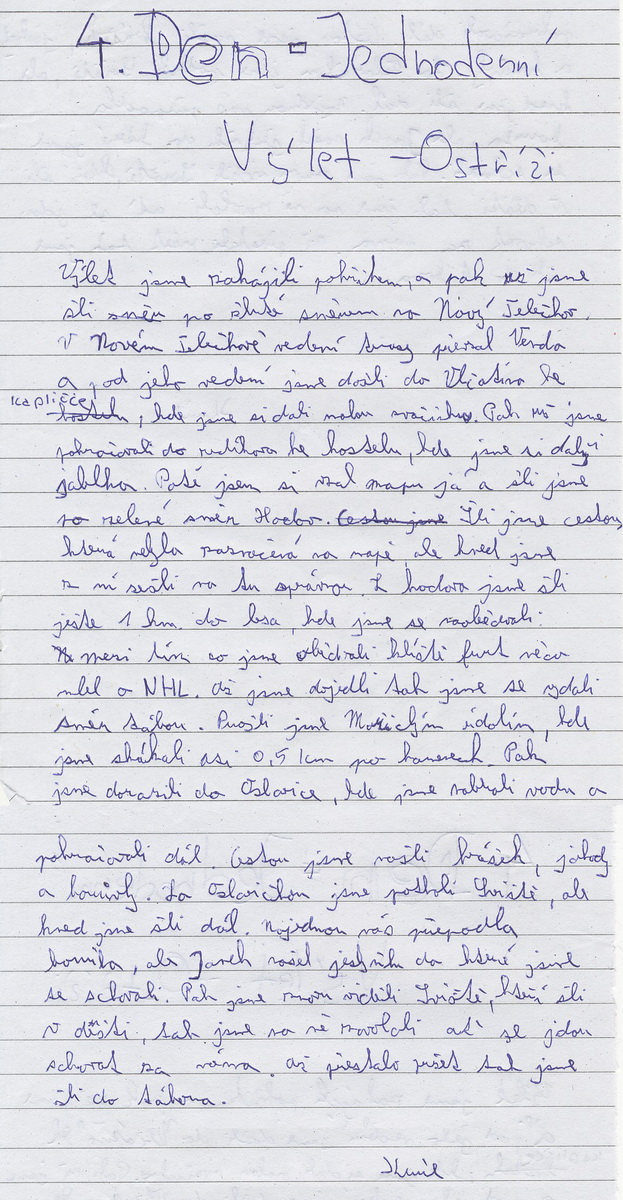 4. Den - Jednodenní
Výlet - Ostříži
Výlet jsme zahájili pokřikem, a pak už jsme
šli směr po žluté směrem na Nový Telečkov.
V Novém Telečkově vedení trasy převzal Verda
a pod jeho vedením jsme došli do Vlčatína ke
kapličce, kde jsme si dali malou svačinku. Pak už jsme
pokračovali do rudíkova ke kostelu, kde jsme si dali
jablka. Poté jsem si vzal mapu já a šli jsme
po zelené směr Hodov. Cestou jsme Šli jsme cestou,
která nebyla zaznačená na mapě, ale hned jsme
z ní sešli na tu správnou. Z hodova jsme šli
ještě 1 km do lesa, kde jsme se naobědvali.
mezi tím co jsme obědvali klíště furt něco
mlel o NHL. až jsme dojedli tak jsme se vydali
směr tábor. Prošli jsme údolím, kde
jsme skákali asi 0,5 km po kamenech. Pak
jsme dorazili do Oslavice, kde jsme nabrali vodu a
pokračovali dál. Cestou jsme našli hrášek, jahody
a houmoly. Za Oslavičkou jsme potkali Sviště, ale
hned jsme šli dál. Najednou nás přepadla
bouřka, ale Jarek našel jeskyňku do které jsme
se schovali. Pak jsme znovu viděli Sviště, kteří šli
v dešti, tak jsme na ně zavolali ať se jdou
schovat za náma. až přestalo pršet tak jsme
šli do tábora.